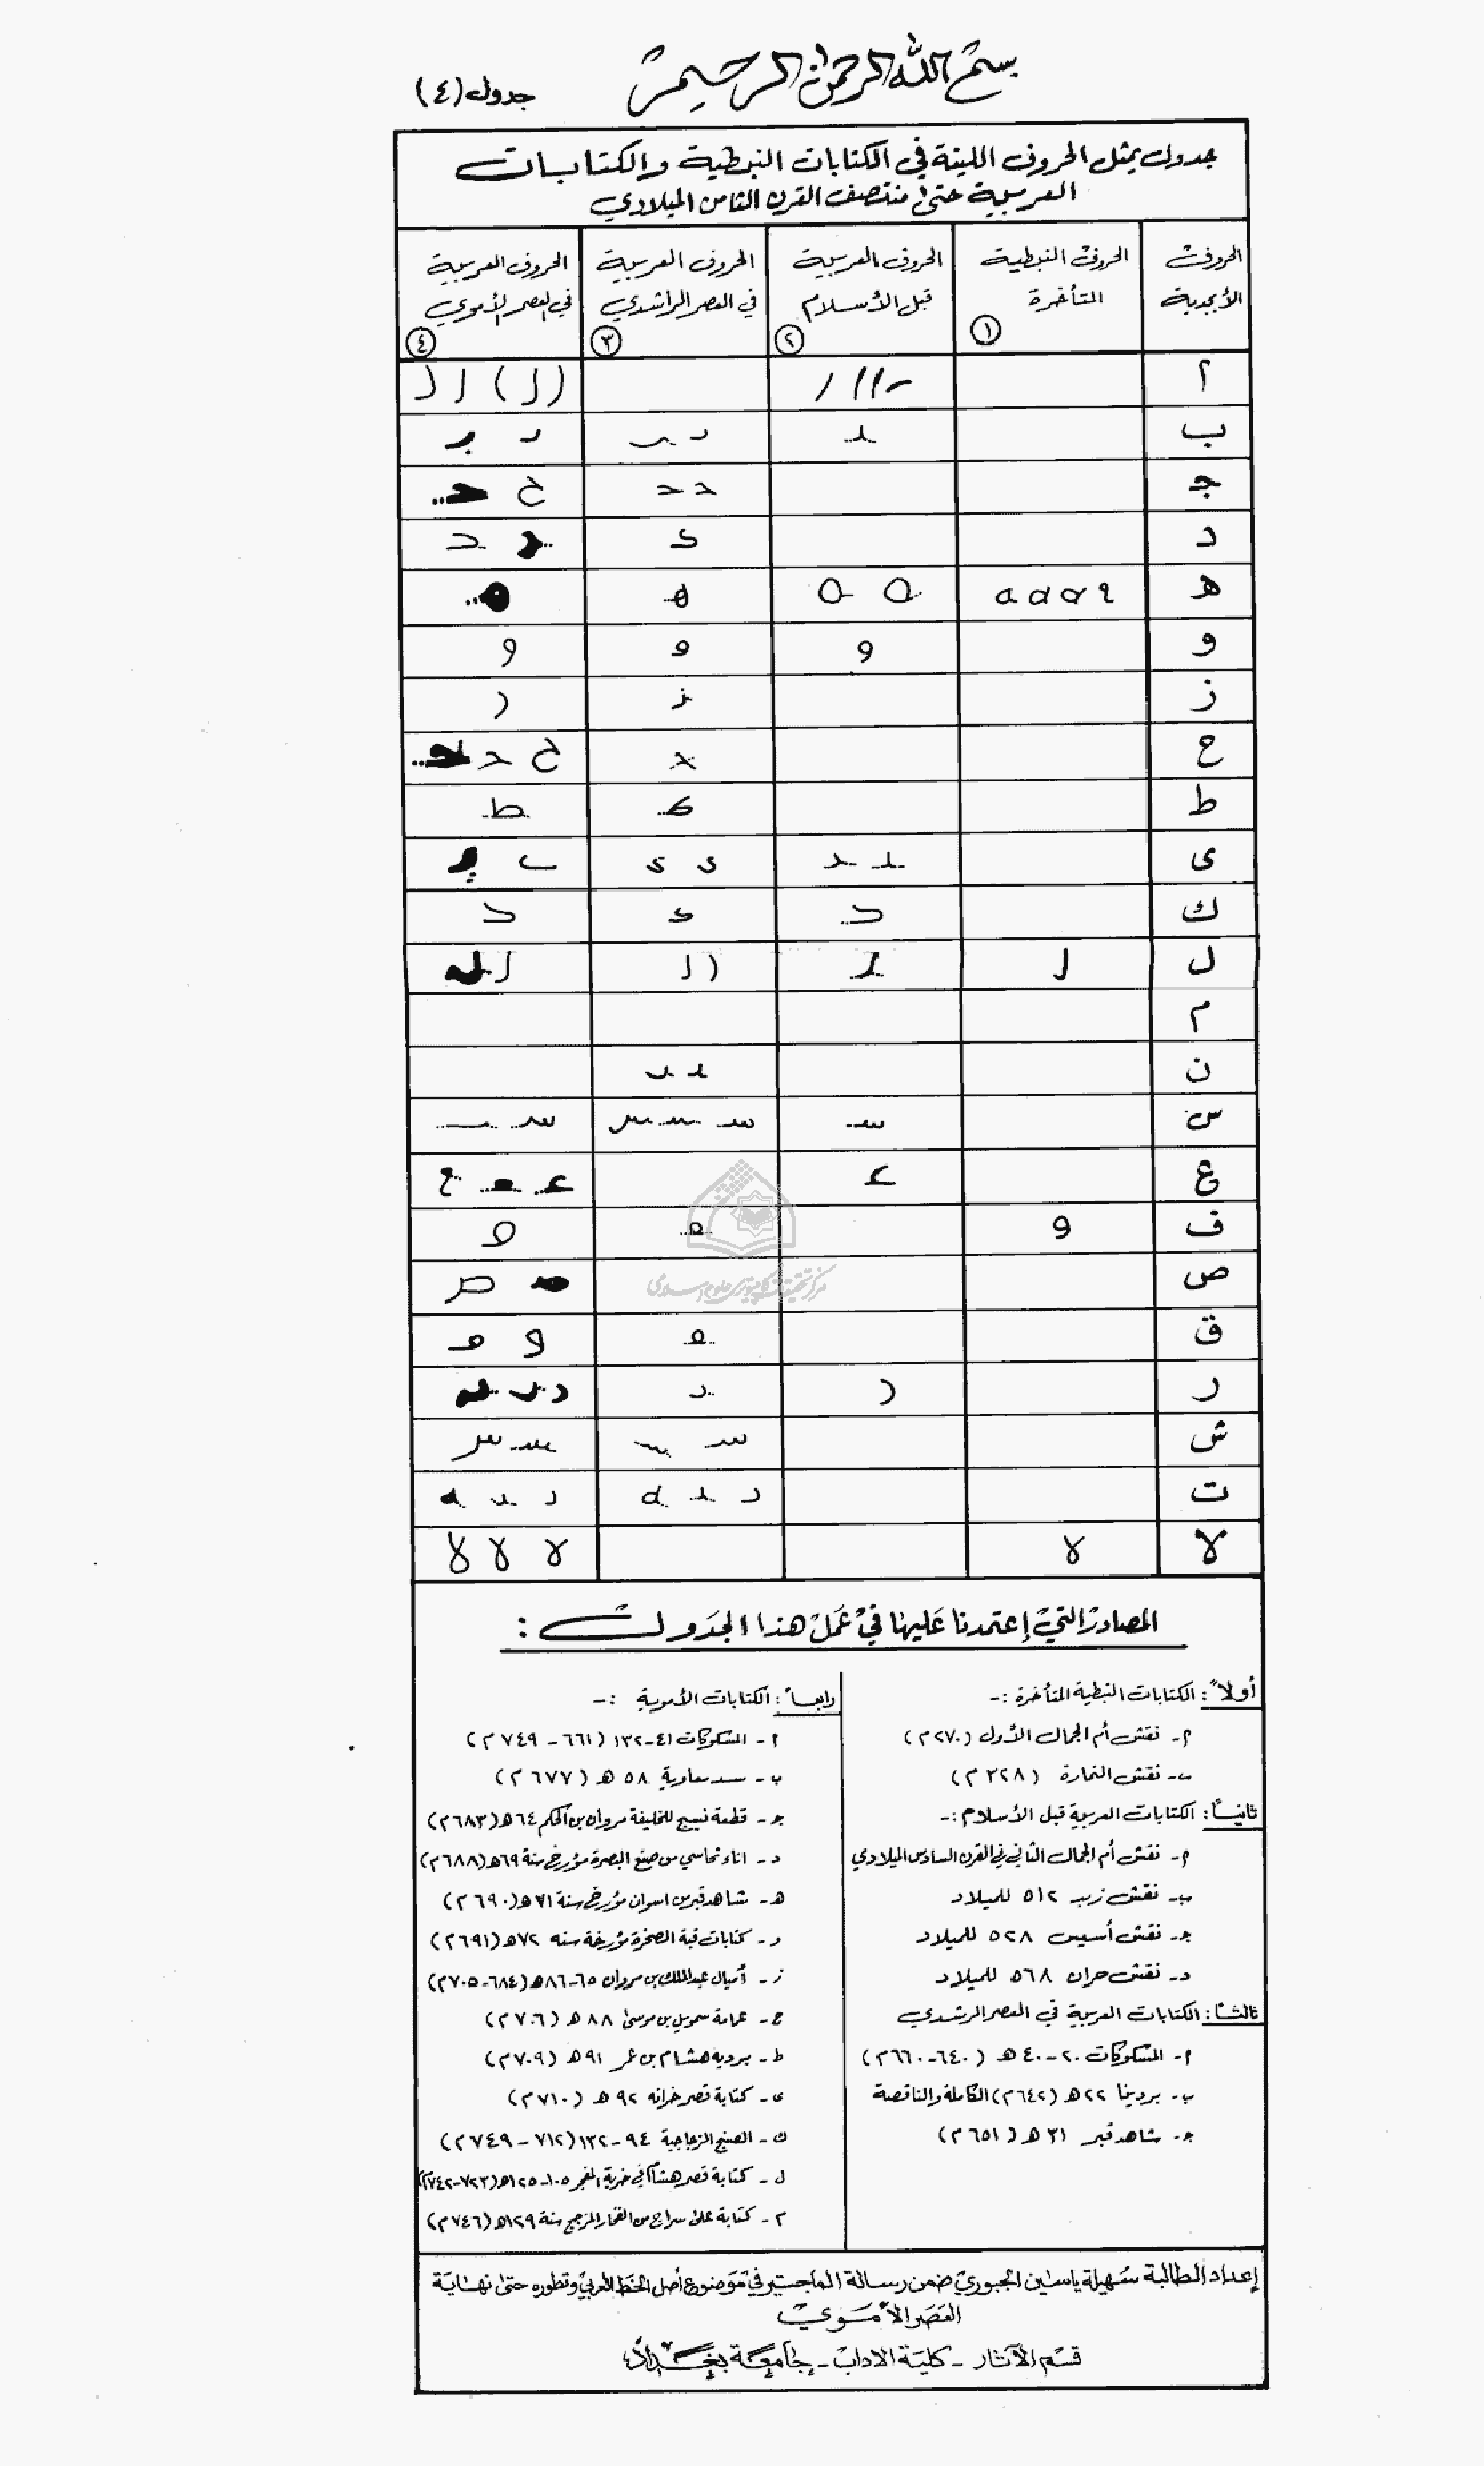 بسم الله الرحمن الرحيم
جدول (٤)
جدول يمثل الحروف اللينة في الكتابات النبطية والكتابات
العربية حتى منتصف القرن الثامن الميلادي
الحروف الأبجدية
الحروف النبطية المتأخرة ١
الحروف العربية قبل الأسلام ٢
الحروف العربية في العصر الراشدي ٣
الحروف العربية في العصر الأموي ٤
أ
ب
جـ
د
هـ
و
ز
ح
ط
ى
ك
ل
م
ن
س
ع
ف
ص
ق
ر
ش
ت
لا
المصادر التي إعتمدنا عليها في عمل هذا الجدول :
أولاً : الكتابات النبطية المتأخرة :-
أ- نقش أم الجمال الأول (٢٧٠م)
ب- نقش النمارة (٣٢٨م)
ثانياً : الكتابات العربية قبل الأسلام :-
أ- نقش أم الجمال الثاني في القرن السادس الميلادي
ب- نقش زبد ٥١٢ للميلاد
جـ- نقش أسيس ٥٢٨ للميلاد
د- نقش حران ٥٦٨ للميلاد
ثالثاً : الكتابات العربية في العصر الرشدي
أ- المسكوكات ٢٠-٤٠هـ (٦٤٠-٦٦٠م)
ب- برديتا ٢٢هـ (٦٤٢م) الكاملة والناقصة
جـ- شاهد قبر ٣١هـ (٦٥١م)
رابعاً : الكتابات الأموية :-
أ- المسكوكات ٤١-١٣٢ (٦٦١-٧٤٩م)
ب- سد معاوية ٥٨هـ (٦٧٧م)
جـ- قطعة نسيج للخليفة مروان بن الحكم ٦٤هـ (٦٨٣م)
د- اناء نحاسي من صنع البصرة مؤرخ سنة ٦٩هـ (٦٨٨م)
هـ- شاهد قبر من اسوان مؤرخ سنة ٧١هـ (٦٩٠م)
و- كتابات قبة الصخرة مؤرخة سنه ٧٢هـ (٦٩١م)
ز- أميال عبد الملك بن مروان ٦٥-٨٦هـ (٦٨٤-٧٠٥م)
ح- عمامة سمويل بن موسى ٨٨هـ (٧٠٦م)
ط- برديه هشام بن عمر ٩١هـ (٧٠٩م)
ى- كتابة قصر خرانه ٩٢هـ (٧١٠م)
ك- الصنج الزجاجية ٩٤-١٣٢ (٧١٢-٧٤٩م)
ل- كتابة قصر هشام في خربة المفجر ١٠٥-١٢٥هـ (٧٢٣-٧٤٢م)
م- كتابة على سراج من الفخار المزجج سنة ١٢٩هـ (٧٤٦م)
إعداد الطالبة سهيلة ياسين الجبوري ضمن رسالة الماجستير في موضوع أصل الخط العربي وتطوره حتى نهاية
العصر الأموي
قسم الآثار - كلية الاداب - جامعة بغداد